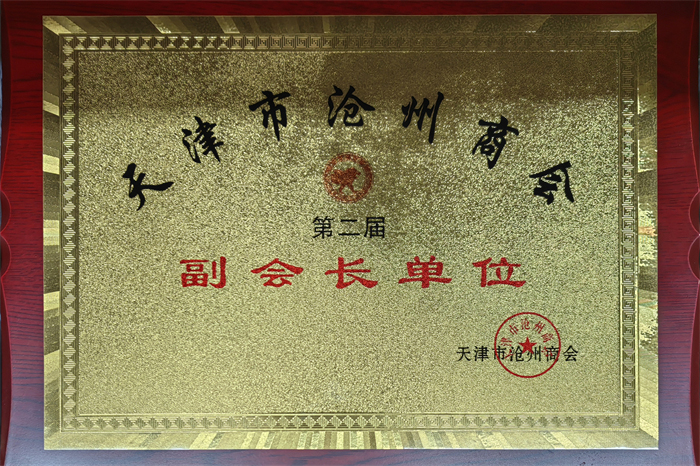 天津市沧州商会
第二届
副会长单位
天津市沧州商会
天津市沧州商会